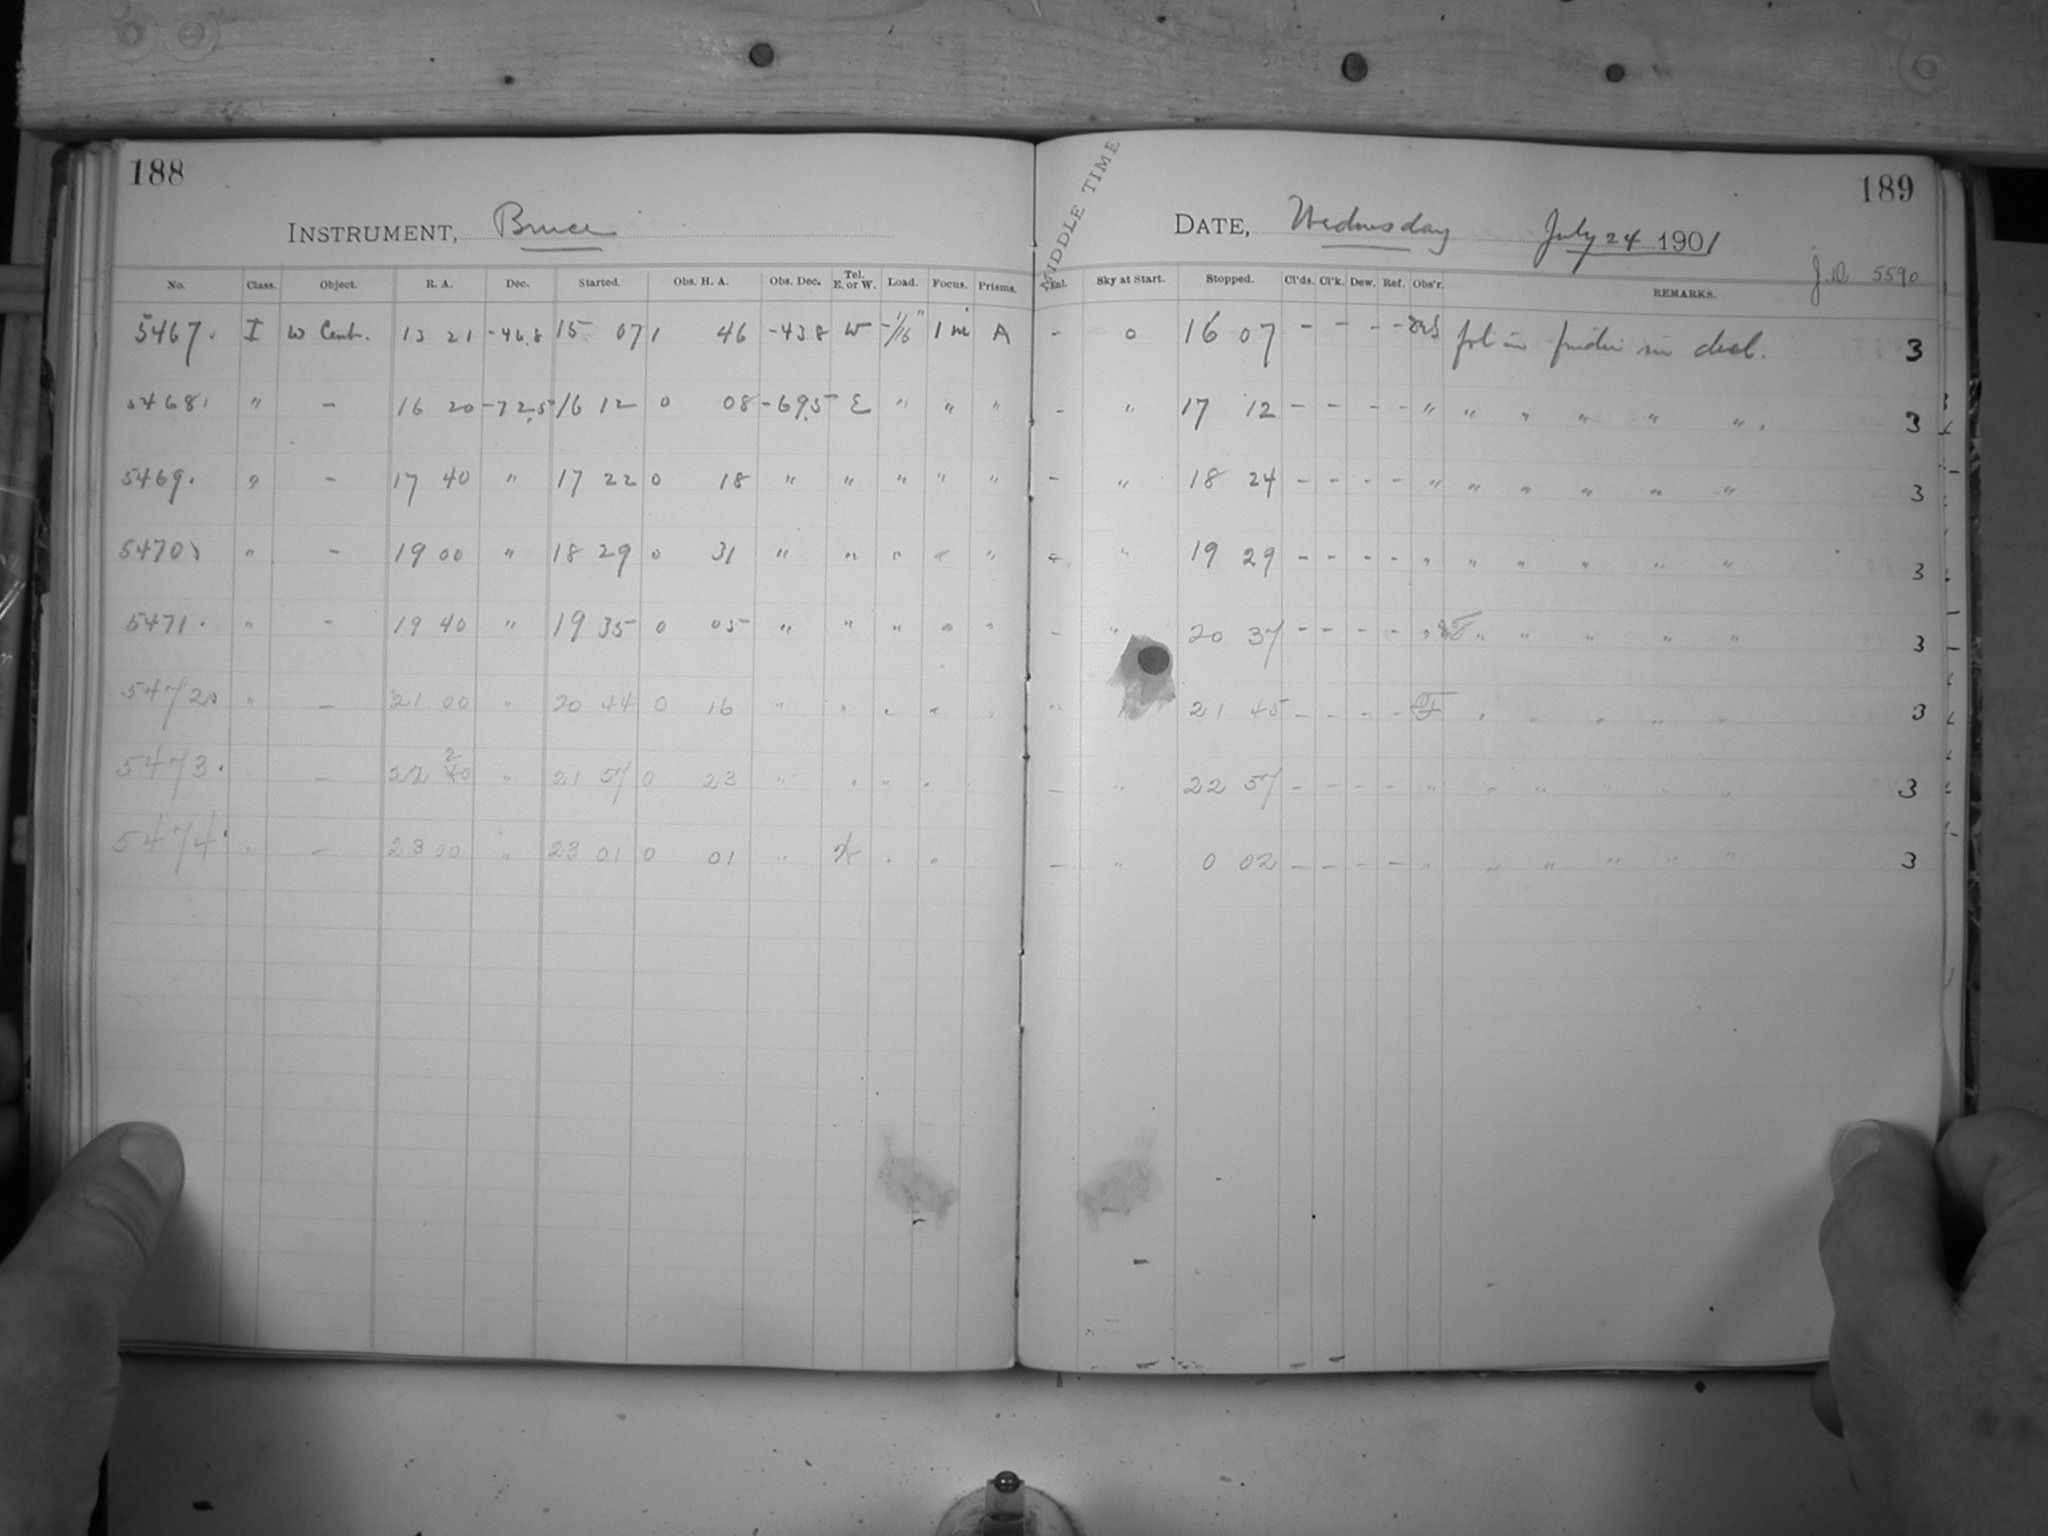 188
INSTRUMENT, Bruce
No. Class. Object. R. A. Dec. Started. Obs. H. A. Obs. Dec. Tel. E. or W. Load. Focus. Prisms.
5467. I W Cent. 13 21 -46.8 15 07 1 46 -43.8 W -1/16" 1 in A
5468. " - 16 20 -72.5 16 12 0 08 -69.5 E " " "
5469. " - 17 40 " 17 22 0 18 " " " " "
5470 " - 19 00 " 18 29 0 31 " " " " "
5471. " - 19 40 " 19 35 0 05 " " " " "
5472 " - 21 00 " 20 44 0 16 " " " " "
5473. - 22 20 " 21 57 0 23 " " " "
5474 " - 23 00 " 23 01 0 01 " " "
189
MIDDLE TIME
DATE, Wednesday July 24 1901
J.D. 5590
Enl. Sky at Start. Stopped. Cl'ds. Cl'k. Dew. Ref. Obs'r. REMARKS.
- 0 16 07 - - - - fol in finder in decl. 3
- " 17 12 - - - - " " " " " ". 3
- " 18 24 - - - - " " " " " " 3
" 19 29 - - - - " " " " " " 3
- " 20 37 - - - - " " " " " " 3
" 21 45 - - - - F " " " " " 3
- " 22 57 - - - - " " " " " " 3
- " 0 02 - - - - " " " " " " 3